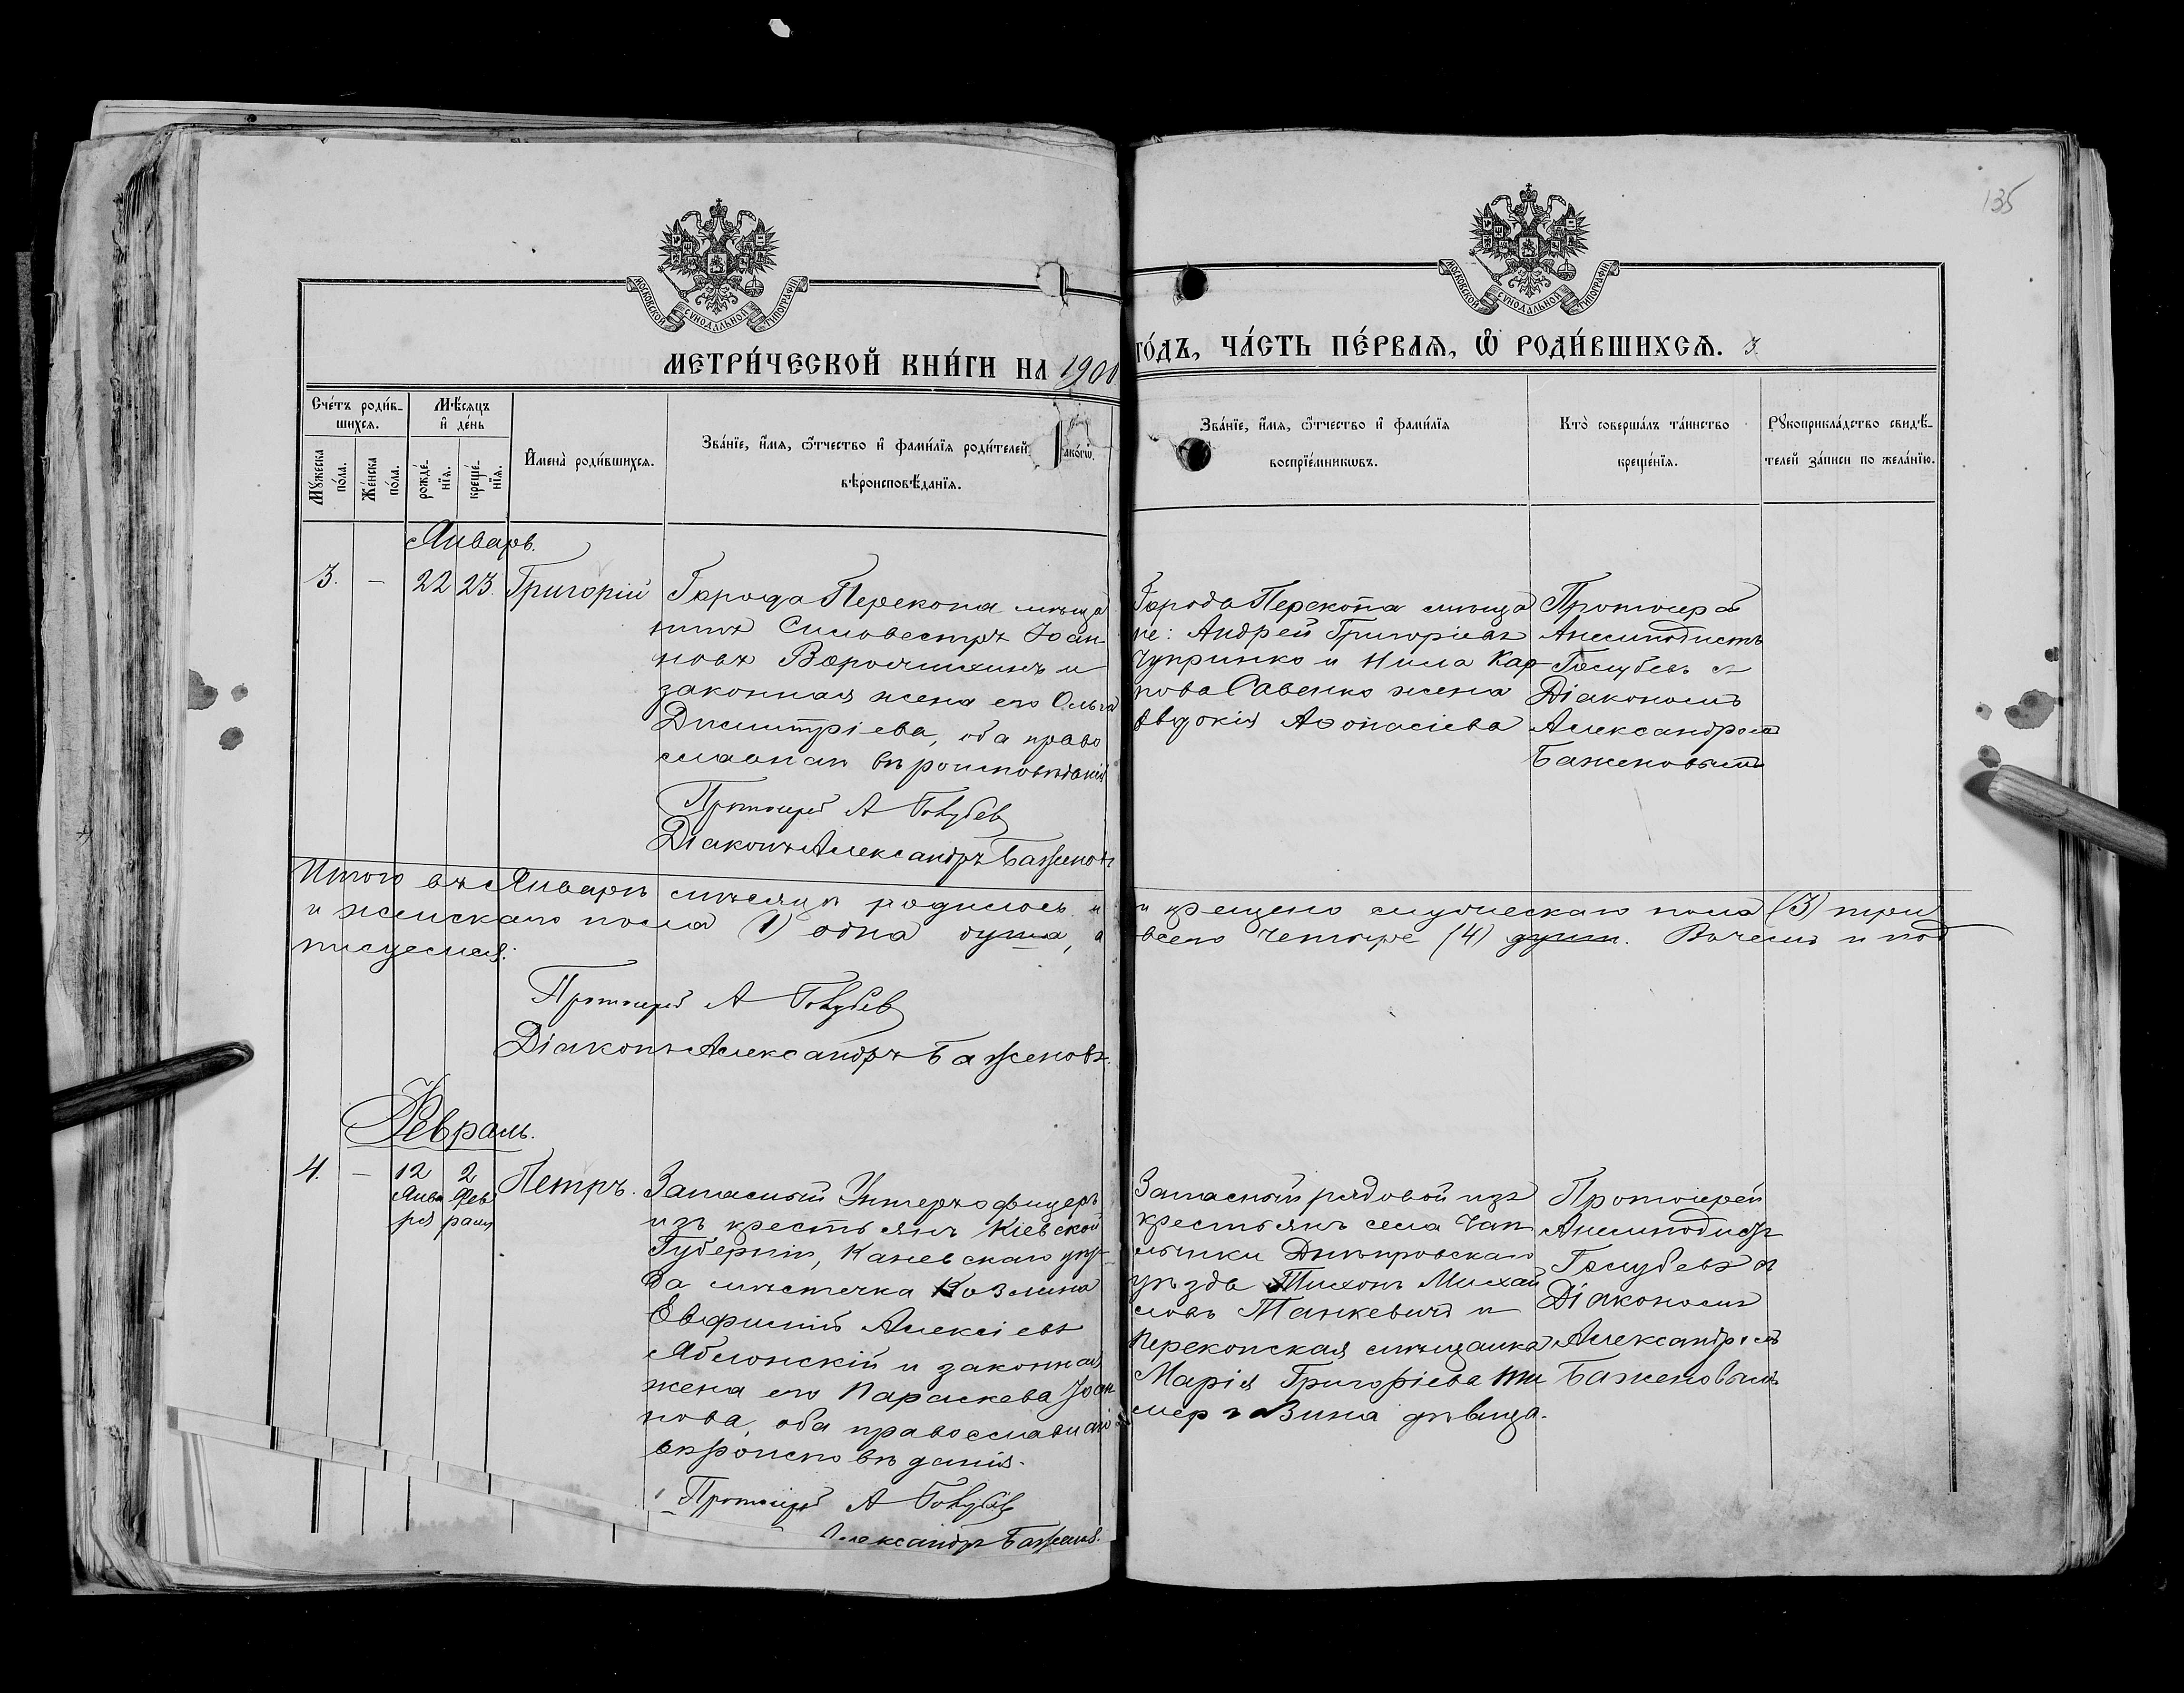 135
МОСКОВСКОЙ СѴНОДАЛЬНОЙ ТИПОГРАФІИ
МОСКОВСКОЙ СѴНОДАЛЬНОЙ ТИПОГРАФІИ
МЕТРИ́ЧЕСКОЙ КНИ́ГИ НА 1900
ГО́ДЪ, ЧА́СТЬ ПЕ́РВАЯ, Ѿ РОДИ́ВШИХСЯ. 3.
Сче́тъ роди́в-
шихся.
Му́жеска
по́ла.
Же́нска
по́ла.
Мѣ́сяцъ
и҆ де́нь
рожде́-
нїя.
креще́-
нїя.
И҆мена̀ роди́вшихся.
Зва́нїе, и҆́мя, ѻ҆́тчество и҆ фами́лїя роди́телей,
како́гѡ
вѣроисповѣ́данїя.
Зва́нїе, и҆́мя, ѻ҆́тчество и҆ фами́лїя
воспрїе́мникѡвъ.
Кто̀ соверша́лъ та́инство
креще́нїя.
Рꙋкоприкла́дство свидѣ́-
телей за́писи по жела́нїю.
Январь.
3. — 22 23. Григорій
Города Перекопа мѣща
нинъ Силовестръ Іоан
новъ Ворочихинъ и
законная жена его Ольга
Димитріева, оба право
славнаго вѣроисповѣданія
Протоіерей А Голубев
Діаконъ Александръ Баженовъ
Города Перекопа мѣща
не: Андрей Григоріевъ
Чупринко и Нила Кар
пова Савенко жена
Евдокія Афонасіева
Протоіерей
Анемподистъ
Голубевъ съ
Діакономъ
Александромъ
Баженовымъ
Итого въ Январѣ мѣсяцѣ родилось и
и крещено мужескаго пола (3) три
и женскаго пола (1) одна душа, а
всего четыре (4) душъ. В чемъ и под
писуемся:
Протоіерей А Голубев
Діаконъ Александръ Баженовъ.
Февраль.
4. — 12 2 Петръ.
Янва Фев
ря раля
Запасный Унтеръ офицеръ
изъ крестьянъ Кіевской
Губерніи, Каневскаго уѣз
да мѣстечка Козлина
Евфимій Алексіевъ
Яблонскій и законная
жена его Параскева Іоан
нова, оба православнаго
вѣроисповѣданія.
Протоіерей А Голубев
Александръ Баженовъ.
Запасный рядовой изъ
крестьянъ села Чап
лынки Днѣпровскаго
уѣзда Тихонъ Михай
ловъ Танкевичъ и
Перекопская мѣщанка
Марія Григоріева
дѣвица.
Протоіерей
Анемподистъ
Голубевъ съ
Діакономъ
Александромъ
Баженовымъ